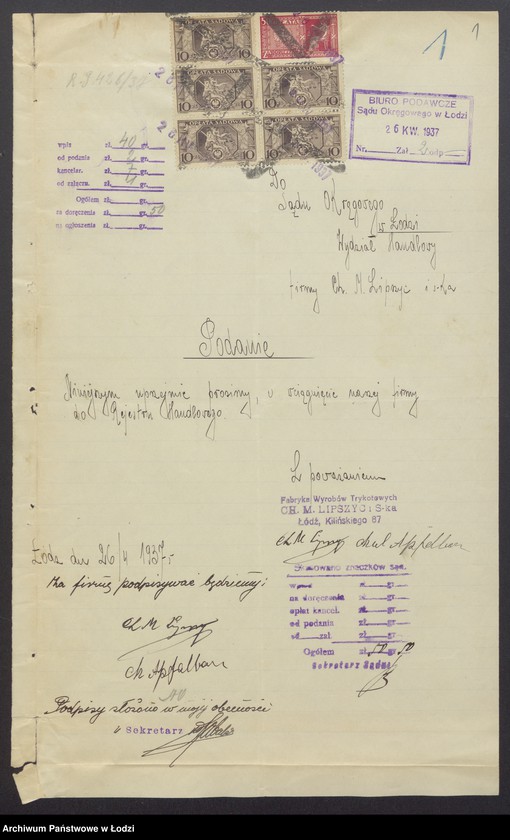 1 1
R.J 426/37
OPŁATA SĄDOWA
10 10
OPŁATA SĄDOWA OPŁATA SĄDOWA
10 10 10 10
OPŁATA SĄDOWA OPŁATA SĄDOWA
10 10 10 10
1937
BIURO PODAWCZE
Sądu Okręgowego w Łodzi
26 KW. 1937
Nr. Zał. 2 odp
wpis zł. 40 gr.
od podania zł. 4 gr.
kancelar. zł. 4 gr.
od załącz. zł. gr.
Ogółem zł. gr.
za doręczenie zł. gr. 50
na ogłoszenie zł. gr.
Do
Sądu Okręgowego
w Łodzi
Wydział Handlowy
firmy Ch. M. Lipszyc i s-ka
Podanie
Niniejszym uprzejmie prosimy, o wciągnięcie naszej firmy
do Rejestru Handlowego.
Z poważaniem
Fabryka Wyrobów Trykotowych
CH. M. LIPSZYC i S-ka
Łódź, Kilińskiego 87
Ch M Lipszyc Apfelbaum
Łódź dn 26/4 1937 r
Za firmę podpisywać będziemy:
Ch M Lipszyc
Ch Apfelbaum
Skasowano znaczków sąd.
wpud zł. gr.
na doręczenie zł. gr.
opłat kancel. zł. gr.
od podania zł. gr.
od zał. zł. gr.
Ogółem zł. 50 gr 50
Sekretarz Sądu
Podpisy złożono w mojej obecności
Sekretarz
Archiwum Państwowe w Łodzi